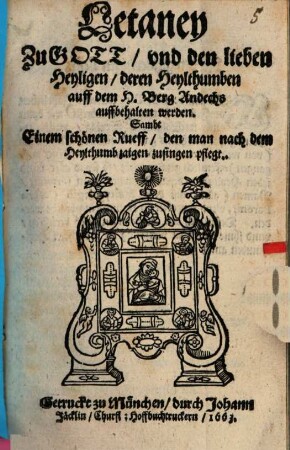 5
Letaney
Zu GOTT / vnd den lieben
Heyligen / deren Heylthumben
auff dem H. Berg Andechs
auffbehalten werden.
Sambt
Einem schönen Rueff / den man nach dem
Heylthumb zaigen zusingen pflegt.
Getruckt zu München / durch Johann
Jäcklin / Churfl: Hoffbuchtruckern / 1663.